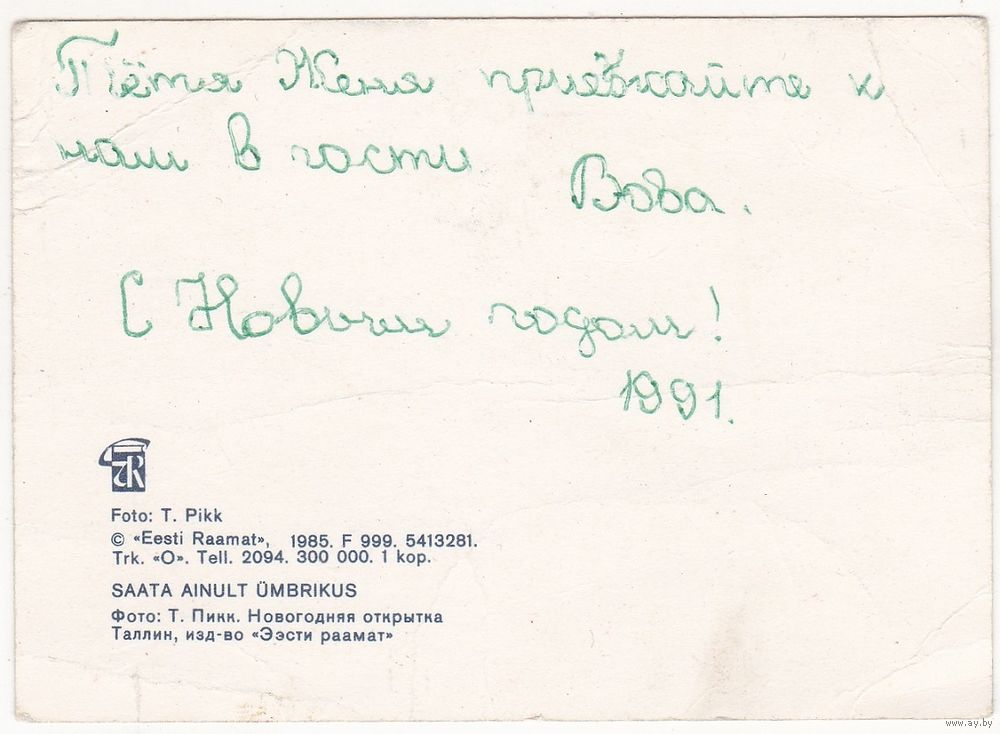 Тётя Женя приезжайте к
нам в гости
Вова.
С Новым годом!
1991.
Foto: T. Pikk
© «Eesti Raamat», 1985. F 999. 5413281.
Trk. «O». Tell. 2094. 300 000. 1 kop.
SAATA AINULT ÜMBRIKUS
Фото: Т. Пикк. Новогодняя открытка
Таллин, изд-во «Ээсти раамат»
www.ay.by